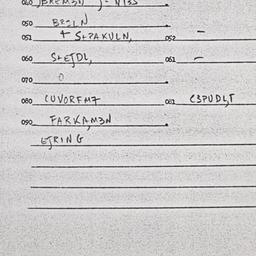 050 BEGIN
051 + SLPAKULN, 052 -
060 SLEJDL, 061 -
070 0
080 CUVORFM7 081 C3PUDL,T
090 FARKA,M3N
EJRING